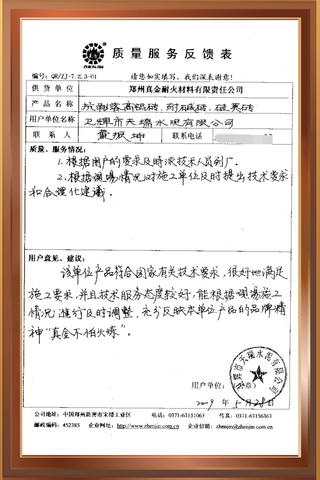 ZHENJIN
质量服务反馈表
编号：QR/ZJ-7.2.3-01 请您如实填写，我们深表谢意！
供货单位 郑州真金耐火材料有限责任公司
产品名称 抗剥落高铝砖、耐碱砖、硅莫砖
用户单位名称 卫辉市天瑞水泥有限公司
联系人 董振坤 联系电话
质量、服务情况：
1、根据用户的要求及时派技术人员到厂。
2、根据现场情况对施工单位及时提出技术要求
和合理化建议。
用户意见、建议：
该单位产品符合国家有关技术要求，很好地满足
施工要求，并且技术服务态度较好，能根据现场施工
情况进行及时调整，充分反映本单位产品的品牌精
神“真金不怕火炼”。
卫辉市天瑞水泥有限公司
用户单位： 章）
2009年5月28日
公司地址：中国郑州新密市宋楼工业区 电话：0371-63151063 传真：0371-63156363
邮政编码：452385 企业网址：http://www.zhenjin.com 企业信箱：zhenjin@zhenjin.com